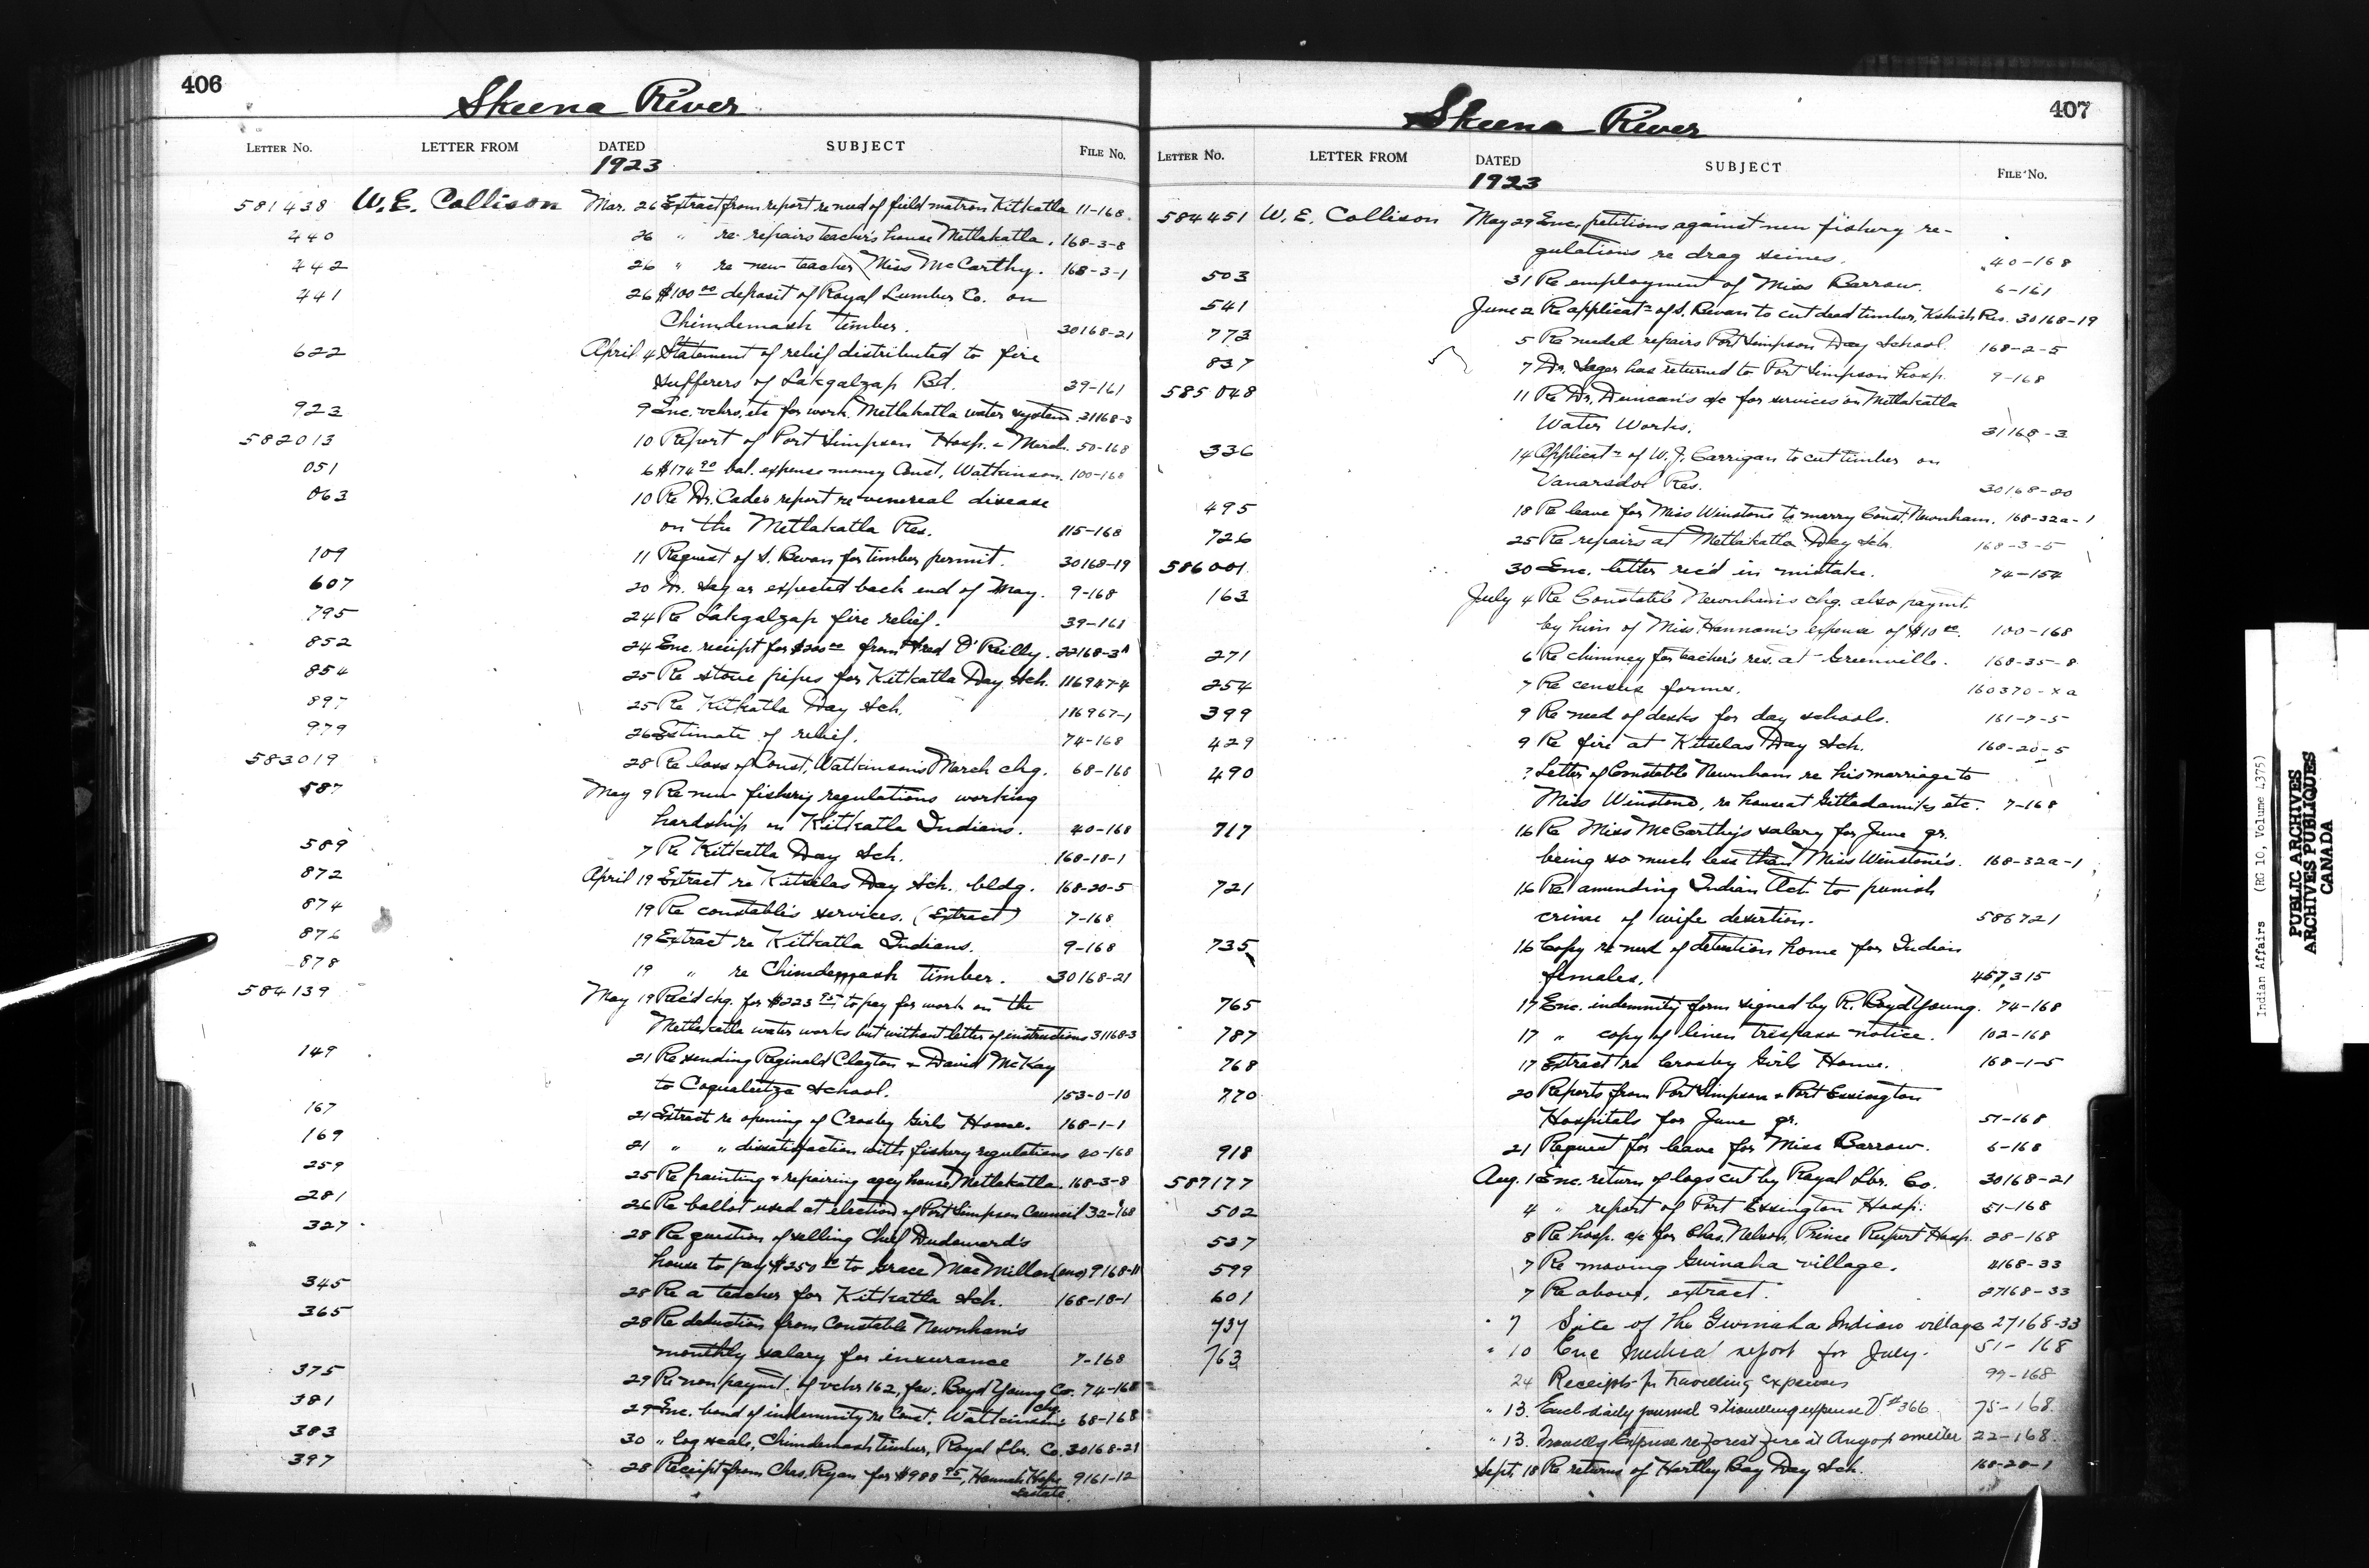 406
Skeena River
LETTER NO. LETTER FROM DATED SUBJECT FILE NO.
1923
581438 W. E. Collison Mar. 26 Extract from report re need of field matron Kitkatla 11-168
440 26 " re repairs teacher's house Metlakatla. 168-3-8
442 26 " re new teacher Miss McCarthy. 168-3-1
441 26 $100 00 deposit of Royal Lumber Co. on
Chimdemash timber. 30168-21
622 April 4 Statement of relief distributed to fire
sufferers of Lakgalzap Bd. 39-161
923 9 Enc. vchrs. etc for work Metlakatla water system 31168-3
582013 10 Report of Port Simpson Hosp. - March. 50-168
051 6 $174 90 bal. expense money Const. Watkinson. 100-168
063 10 Re Dr. Cade's report re venereal disease
on the Metlakatla Res. 115-168
109 11 Request of S. Bevan for timber permit. 30168-19
607 20 Dr. Sagar expected back end of May. 9-168
795 24 Re Lakgalzap fire relief. 39-161
852 24 Enc. receipt for $200 00 from Fred O'Reilly. 22168-3A
854 25 Re stove pipes for Kitkatla Day Sch. 116947-4
897 25 Re Kitkatla Day Sch. 116967-1
979 26 Estimate of relief. 74-168
583019 28 Re loss of Const. Watkinson's March chq. 68-168
587 May 9 Re new fishery regulations working
hardship on Kitkatla Indians. 40-168
589 7 Re Kitkatla Day Sch. 168-18-1
872 April 19 Extract re Kitselas Day Sch. bldg. 168-20-5
874 19 Re constable's services. (Extract) 7-168
876 19 Extract re Kitkatla Indians. 9-168
878 19 " re Chimdemash timber. 30168-21
584139 May 19 Rec'd chq. for $223 95 to pay for work on the
Metlakatla water works but without letter of instructions 31168-3
149 21 Re sending Reginald Clayton & David McKay
to Coqualeetza School. 153-0-10
167 21 Extract re opening of Crosby Girls Home. 168-1-1
169 21 " " dissatisfaction with fishery regulations 40-168
259 25 Re painting & repairing agcy house Metlakatla. 168-3-8
281 26 Re ballot used at election of Port Simpson Council 32-168
327 28 Re question of selling Chief Dudoward's
house to pay $250 00 to Grace MacMillan 9168-11
345 28 Re a teacher for Kitkatla Sch. 168-18-1
365 28 Re deduction from Constable Newnham's
monthly salary for insurance 7-168
375 29 Re non paymt. of vchr 162, fav. Boyd Young Co. 74-168
381 29 Enc. bond of indemnity re Const. Watkinson's chq. 68-168
383 30 " log scale, Chimdemash timber, Royal Lbr. Co. 30168-21
397 28 Receipt from Chas. Ryan for $988 95, Hannah Hope 9161-12
estate.
407
Skeena River
LETTER NO. LETTER FROM DATED SUBJECT FILE NO.
1923
584451 W. E. Collison May 29 Enc. petitions against new fishery re-
gulations re drag seines. 40-168
503 31 Re employment of Miss Barrow. 6-161
541 June 2 Re applicatn of S. Bevan to cut dead timber, Kshish Res. 30168-19
773 5 Re needed repairs Port Simpson Day School. 168-2-5
837 7 Dr. Sagar has returned to Port Simpson hosp. 9-168
585048 11 Re Dr. Duncan's a/c for services on Metlakatla
Water Works. 31168-3
336 14 Applicatn of W. J. Carrigan to cut timber on
Vanarsdol Res. 30168-20
495 18 Re leave for Miss Winstone to marry Const. Newnham. 168-32a-1
726 25 Re repairs at Metlakatla Day Sch. 168-3-5
586001 30 Enc. letter rec'd in mistake. 74-154
163 July 4 Re Constable Newnham's chq. also paymt.
by him of Miss Hannom's expense of $10 00. 100-168
271 6 Re chimney for teacher's res. at Greenville. 168-35-8
254 7 Re census forms. 160370-xa
399 9 Re need of desks for day schools. 161-7-5
429 9 Re fire at Kitselas Day Sch. 168-20-5
490 ? Letter of Constable Newnham re his marriage to
Miss Winstone, re house at Gitladamiks etc. 7-168
717 16 Re Miss McCarthy's salary for June qr.
being so much less than Miss Winstone's. 168-32a-1
721 16 Re amending Indian Act to punish
crime of wife desertion. 586721
735 16 Copy re need of detention home for Indian
females. 457,315
765 17 Enc. indemnity form signed by R. Boyd Young. 74-168
787 17 " copy of linen trespass notice. 102-168
768 17 Extract re Crosby Girls Home. 168-1-5
770 20 Reports from Port Simpson & Port Essington
Hospitals for June qr. 51-168
918 21 Request for leave for Miss Barrow. 6-168
587177 Aug. 1 Enc. return of logs cut by Royal Lbr. Co. 30168-21
502 4 " report of Port Essington Hosp: 51-168
537 8 Re hosp. a/c for Chas. Nelson, Prince Rupert Hosp. 28-168
599 7 Re moving Gwinaha village. 4168-33
601 7 Re above, extract. 27168-33
737 " 7 Site of the Gwinaha Indian village 27168-33
763 " 10 Enc Medical report for July. 51-168
24 Receipts for travelling expenses 99-168
" 13. Encl. daily journal & travelling expense V. # 366 75-168
" 13. Travellg Expense re forest fire at Anyox smelter 22-168
Sept. 18 Re returns of Hartley Bay Day Sch. 168-28-1
Indian Affairs (RG 10, Volume 4375)
PUBLIC ARCHIVES
ARCHIVES PUBLIQUES
CANADA